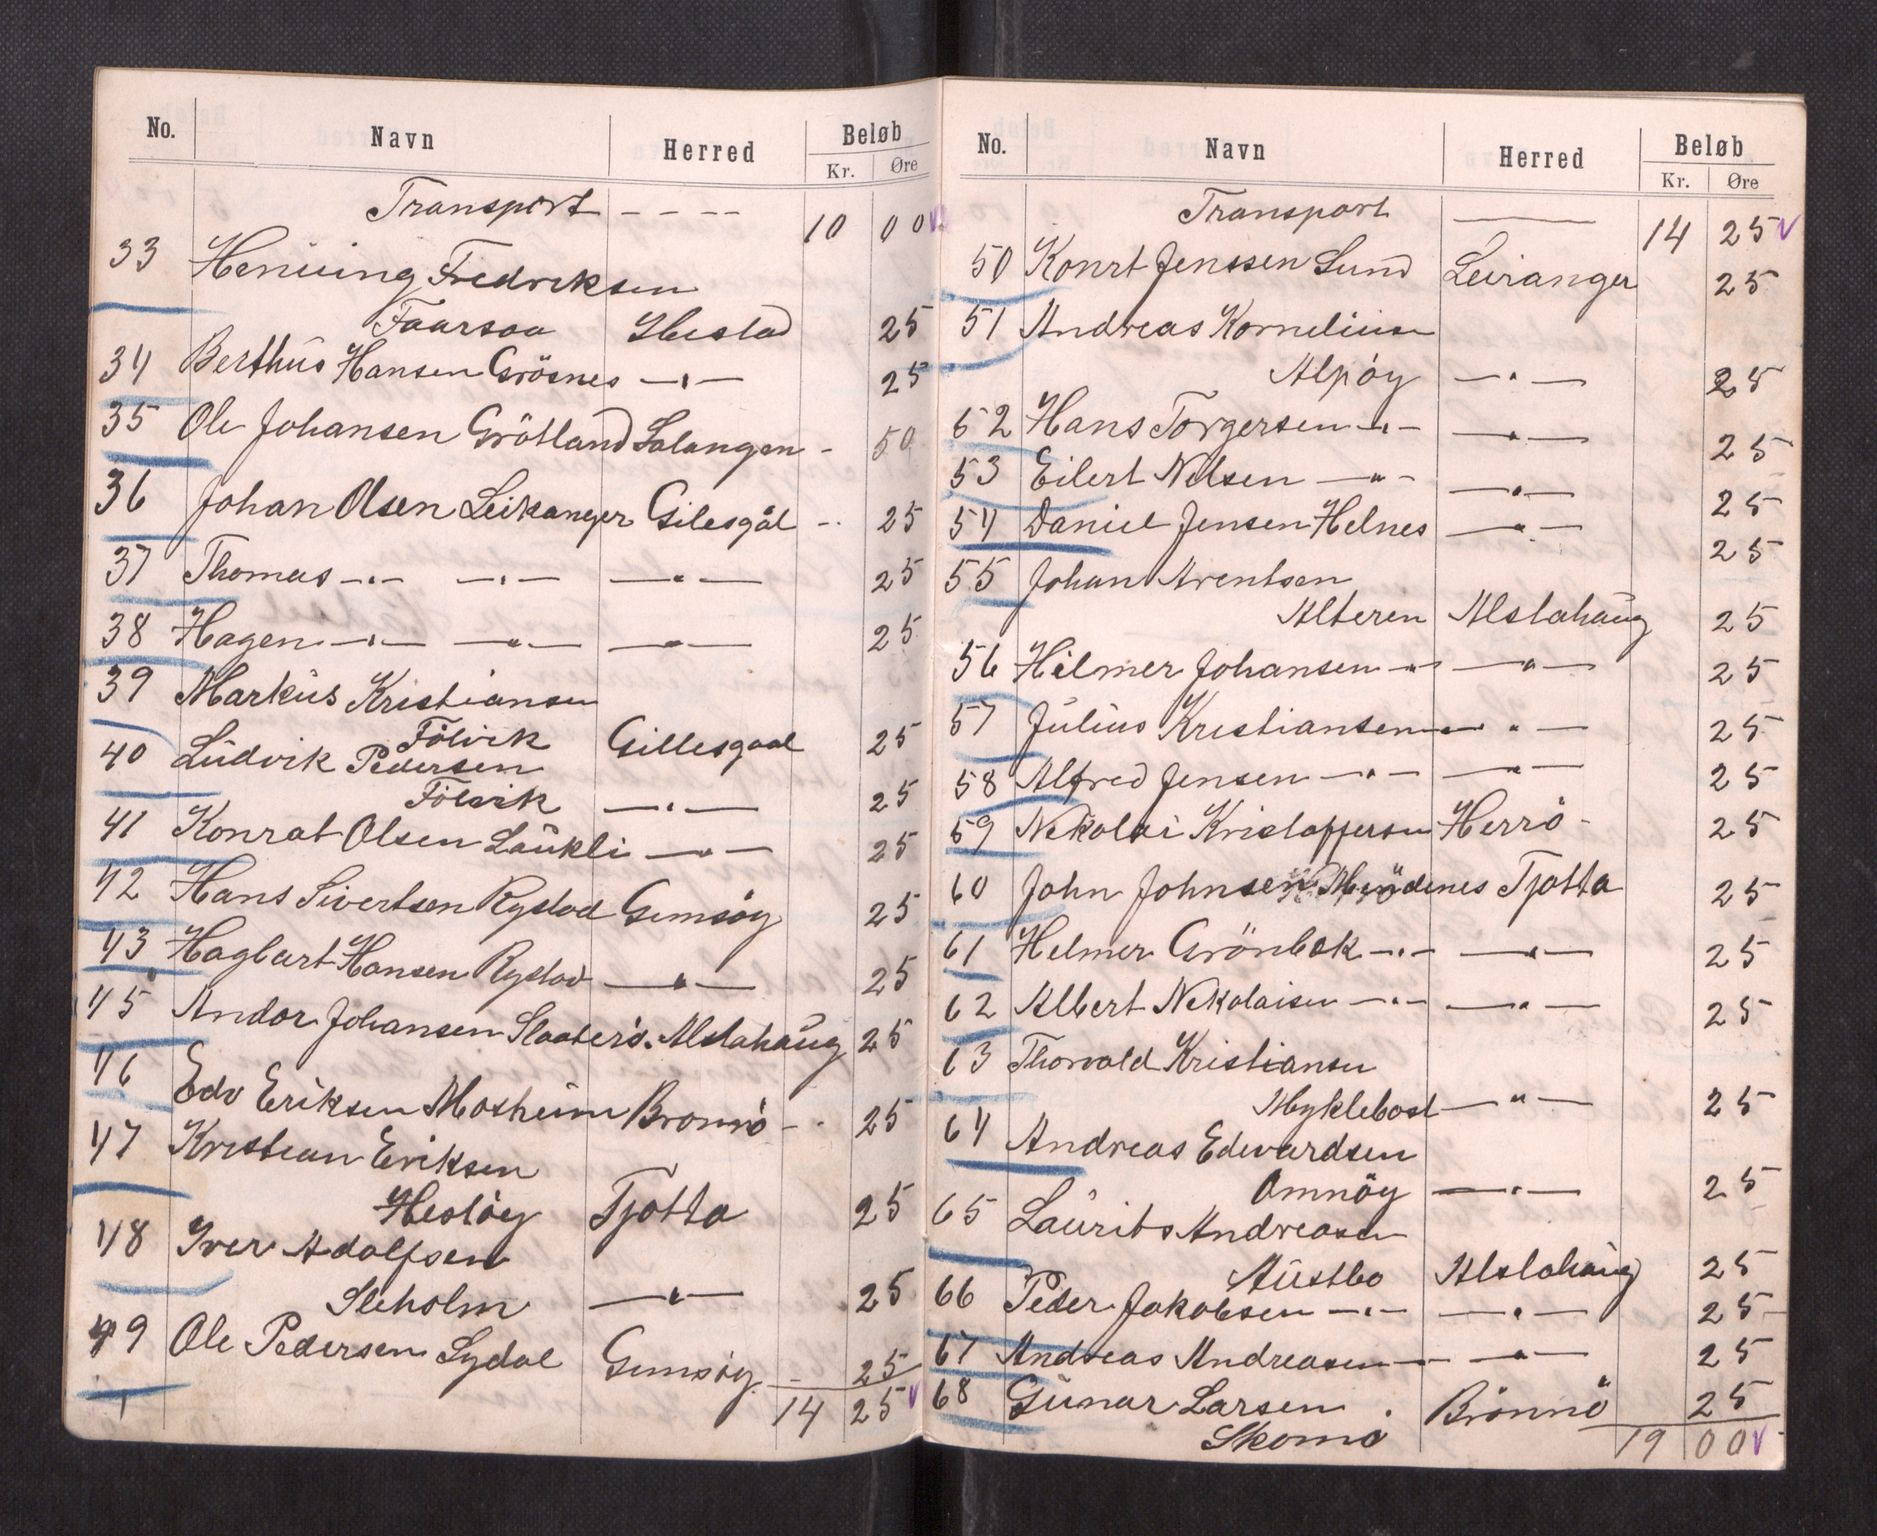 No. Navn Herred Beløb
Kr. Øre
Transport - - - - 10 00
33 Henning Fredriksen
Faarsaa Ibestad 25
34 Berthüs Hansen Grösnes —"— 25
35 Ole Johansen Grötland Salangen - 50
36 Johan Olsen Leikanger Gilesgål - 25
37 Thomas —"— —"— —"— 25
38 Hagen —"— —"— —"— 25
39 Markus Kristiansen
Fölvik Gillesgaal 25
40 Lüdvik Pedersen
Fölvik —"— 25
41 Konrat Olsen Läukli —"— 25
42 Hans Sivertsen Rystad Gimsöy 25
43 Hagbart Hansen Rystad —"— 25
45 Andor Johansen Slaaterö. Alstahäug 25
46 Edv Eriksen Mosheim Bronnö - 25
47 Kristian Eriksen
Hestöy Tjotta 25
48 Iver Adolfsen
Sleholm —"— 25
49 Ole Pedersen Sydal Gimsöy - 25
14 25
No. Navn Herred Beløb
Kr. Øre
Transport —— 14 25
50 Konrt Jenssen Lund Leiranger 25
51 Andreas Kornelius
Alpöy —"— 25
52 Hans Torgersen -"- —"— 25
53 Eilert Nilsen —"- —"— 25
54 Daniel Jensen Helnes —"— 25
55 Johan Arentsen
Alteren Alstahäug 25
56 Hilmer Johansen -"- —"— 25
57 Julius Kristiansen — " — 25
58 Alfred Jensen —"— —"— 25
59 Nikolai Kristoffersen Herrö - 25
60 John Johnsen Mindenes Tjotta 25
61 Helmer Grönbek -"- —"— 25
62 Albert Nikolaisen -"- —"— 25
63 Thorvald Kristiansen
Myklebost —"— 25
64 Andreas Edvardsen
Omnöy —"— 25
65 Läurits Andreasen
Aüstbo Alstahäug 25
66 Peder Jakobsen —"— —"— 25
67 Andreas Andreasen — —"— 25
68 Günar Larsen . Brönnö 25
Skomo
19 00